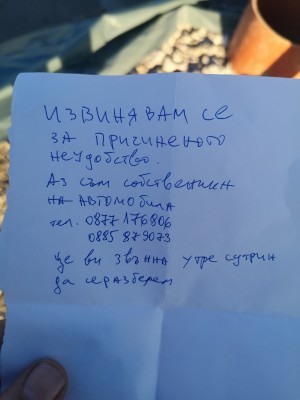 ИЗВИНЯВАМ СЕ
ЗА ПРИЧИНЕНОТО
НЕУДОБСТВО.
АЗ съм собственик
НА АВТОМОБИЛА
тел. 0877 176806
0895 879073
ще ви звънна утре сутрин
да се разберем